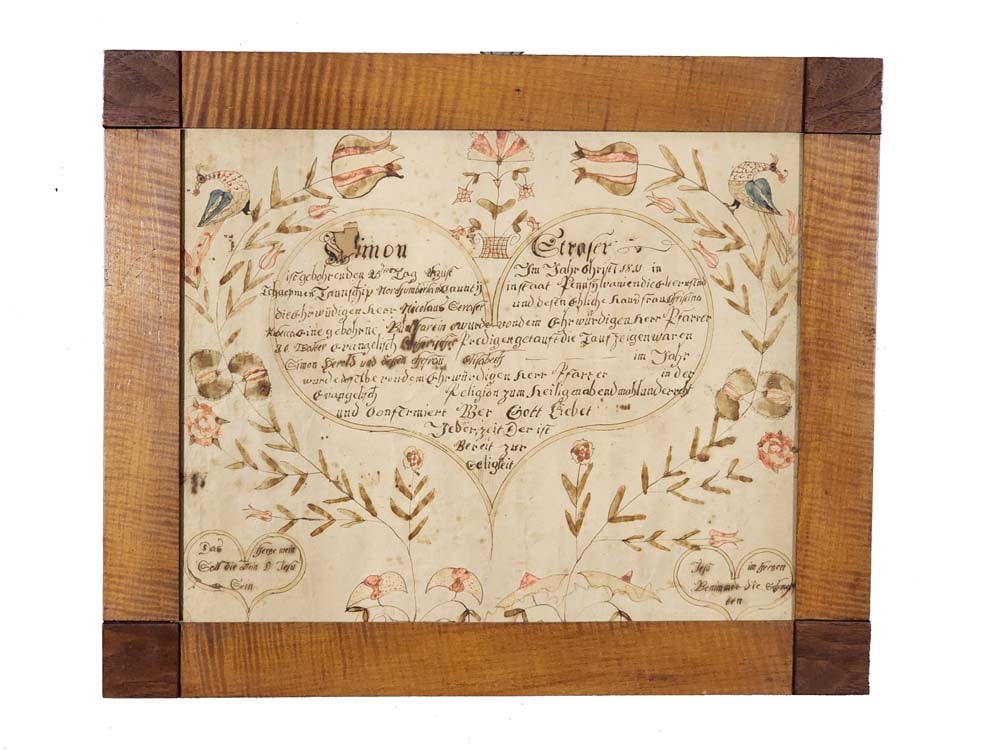 Simon Stroser
ist gebohren den 25ten Tag August Im Jahr Christi 1811 in
Townschip Northumberland Caunty in staat Pensylvanien die
die Ehrwürdigen Herr Nicolaus Stroser und desen Ehliche Hausfrau Christina
Rebeca Eine gebohrne wurde von dem Ehrwürdigen Herr Pfarrer
Evangelisch Prediger getauft die Taufzeigen waren
Simon Herold und desen ehefrau Elisabeth im Jahr
wurde von dem Ehrwürdigen Herr Pfarrer in der
Evangelisch Religion zum Heiligen abendmahl
und Confermiert Wer Gott Liebet
Jeder zeit Der ist
Bereit zur
Seligkeit
Das Herze mein
Soll die Wein O Jesu
Sein
Jesu im herzen
Benimmt die Schmer
ben